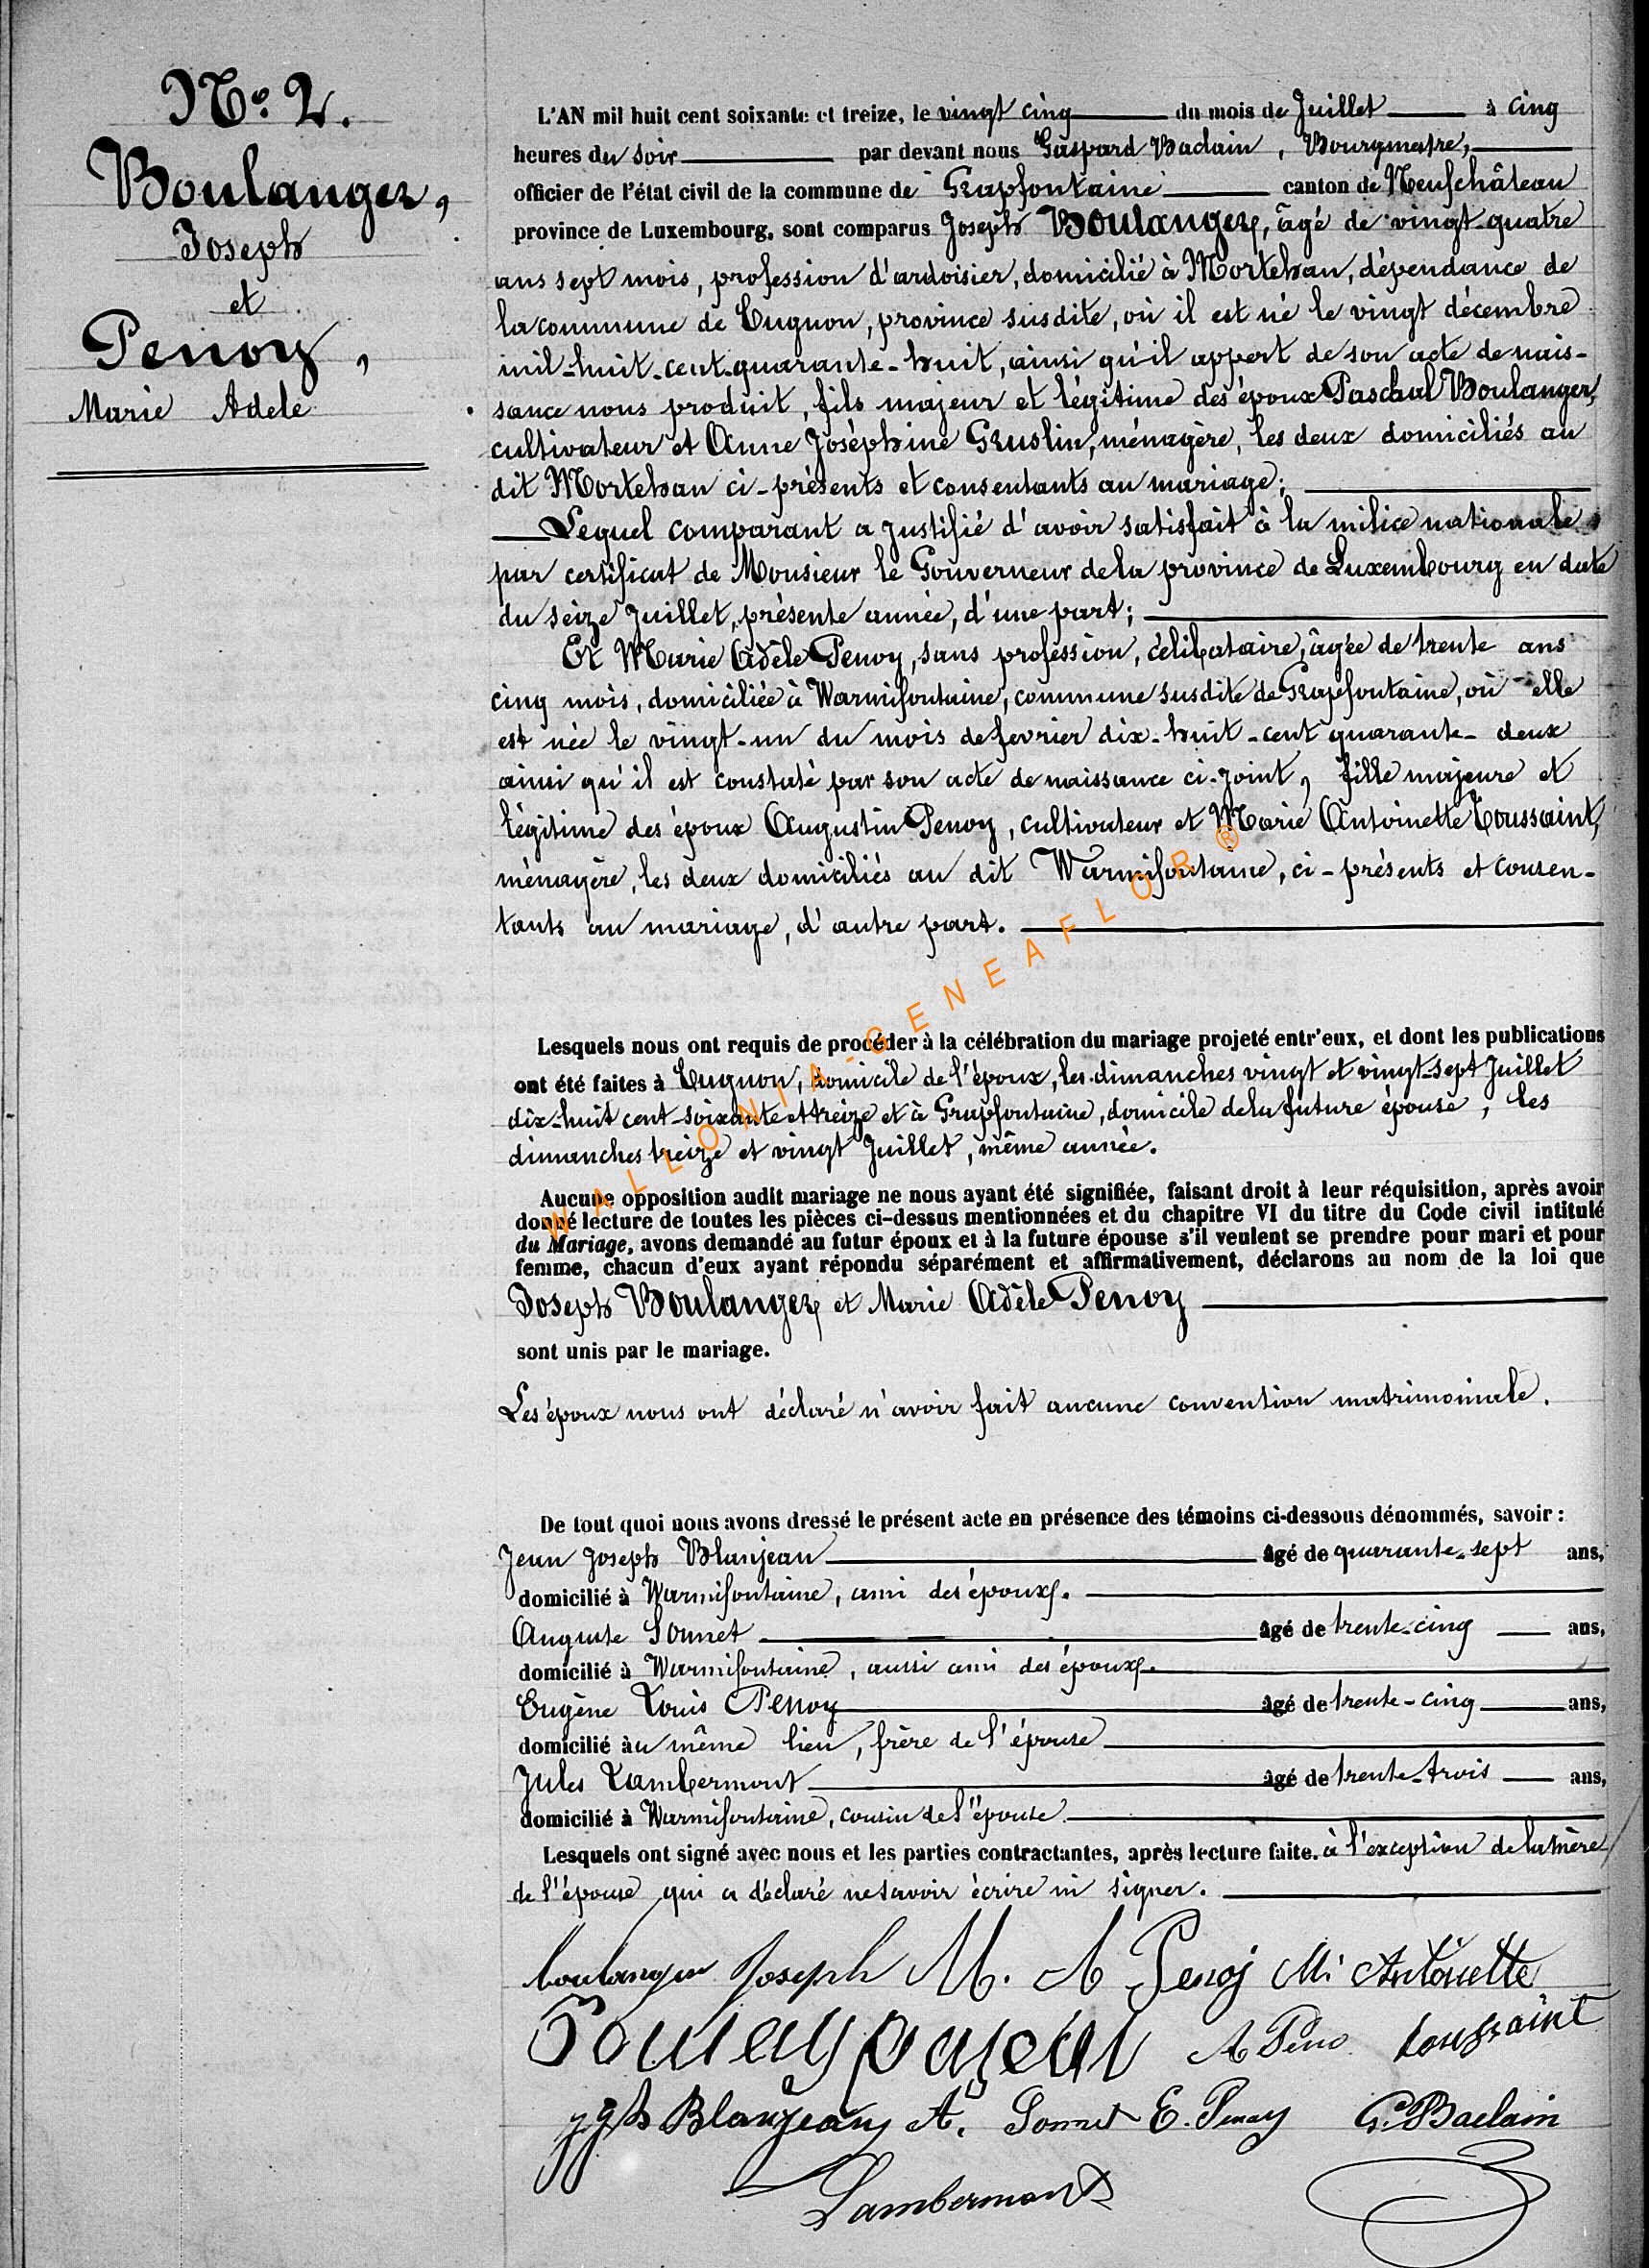 N.º 2.
Boulanger,
Joseph
et
Penoy,
Marie Adele
L'AN mil huit cent soixante et treize, le vingt cinq du mois de Juillet à cinq
heures du soir par devant nous Gaspard Baclain, Bourgmestre,
officier de l'état civil de la commune de Grapfontaine canton de Neufchâteau
province de Luxembourg, sont comparus Joseph Boulanger, âgé de vingt-quatre
ans sept mois, profession d'ardoisier, domicilié à Mortehan, dépendance de
la commune de Cugnon, province susdite, où il est né le vingt décembre
mil-huit-cent-quarante-huit, ainsi qu'il appert de son acte de nais-
sance nous produit, fils majeur et légitime des époux Paschal Boulanger,
cultivateur et Anne Joséphine Gruslin, ménagère, les deux domiciliés au
dit Mortehan ci-présents et consentants au mariage;
Lequel comparant a justifié d'avoir satisfait à la milice nationale
par certificat de Monsieur le Gouverneur de la province de Luxembourg en date
du seize Juillet, présente année, d'une part;
Et Marie Adèle Penoy, sans profession, célibataire, âgée de trente ans
cinq mois, domiciliée à Warmifontaine, commune susdite de Grapfontaine, où elle
est née le vingt-un du mois de fevrier dix-huit-cent quarante-deux
ainsi qu'il est constaté par son acte de naissance ci-joint, fille majeure et
légitime des époux Augustin Penoy, cultivateur et Marie Antoinette Toussaint,
ménagère, les deux domiciliés au dit Warmifontaine, ci-présents et consen-
tants au mariage, d'autre part.
WALLONIA-GENEAFLOR®
Lesquels nous ont requis de procéder à la célébration du mariage projeté entr'eux, et dont les publications
ont été faites à Cugnon, domicile de l'époux, les dimanches vingt et vingt-sept Juillet
dix-huit cent-soixante et treize et à Grapfontaine, domicile de la future épouse, les
dimanches treize et vingt Juillet, même année.
Aucune opposition audit mariage ne nous ayant été signifiée, faisant droit à leur réquisition, après avoir
donné lecture de toutes les pièces ci-dessus mentionnées et du chapitre VI du titre du Code civil intitulé
du Mariage, avons demandé au futur époux et à la future épouse s'il veulent se prendre pour mari et pour
femme, chacun d'eux ayant répondu séparément et affirmativement, déclarons au nom de la loi que
Joseph Boulanger et Marie Adèle Penoy
sont unis par le mariage.
Les époux nous ont déclaré n'avoir fait aucune convention matrimoniale.
De tout quoi nous avons dressé le présent acte en présence des témoins ci-dessous dénommés, savoir :
Jean Joseph Blanjean âgé de quarante-sept ans,
domicilié à Warmifontaine, ami des époux.
Auguste Sonnet âgé de trente-cinq ans,
domicilié à Warmifontaine, aussi ami des époux.
Eugène Louis Penoy âgé de trente-cinq ans,
domicilié au même lieu, frère de l'épouse
Jules Lambermont âgé de trente-trois ans,
domicilié à Warmifontaine, cousin de l'épouse.
Lesquels ont signé avec nous et les parties contractantes, après lecture faite. à l'exception de la mère
de l'épouse qui a déclaré ne savoir écrire ni signer.
boulanger Joseph M. A Penoj M. Antoinette
A Peno toussaint
Blanjean A. Sonnet E. Penoy G. Baclain
Lambermont